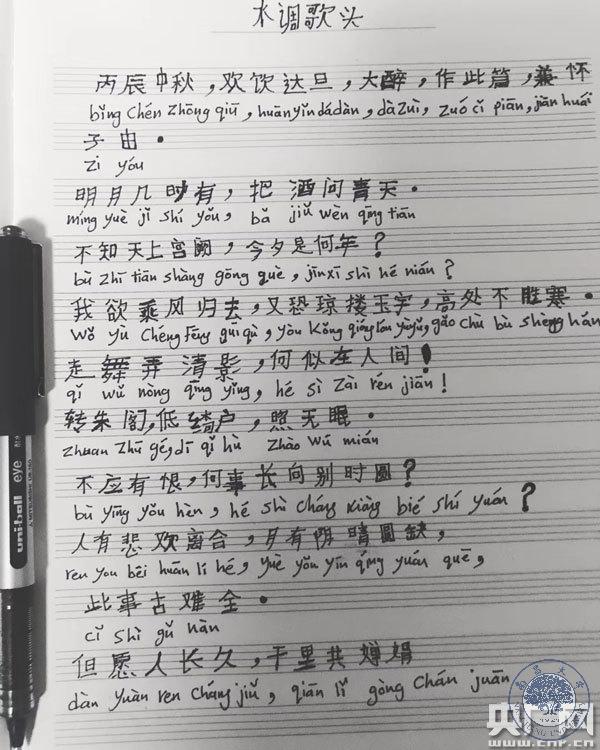 水调歌头
丙辰中秋，欢饮达旦，大醉，作此篇，兼怀
bǐng chén zhōng qiū, huān yǐn dá dàn, dà zuì, zuó cǐ piān, jiān huái
子由．
zi yóu
明月几时有，把酒问青天．
míng yuè jǐ shí yǒu, bǎ jiǔ wèn qīng tiān
不知天上宫阙，今夕是何年？
bù zhī tiān shàng gōng què, jīn xī shì hé nián?
我欲乘风归去，又恐琼楼玉宇，高处不胜寒．
wǒ yù chéng fēng guī qù, yòu kǒng qióng lóu yù yǔ, gāo chù bù shèng hán
起舞弄清影，何似在人间！
qǐ wǔ nòng qīng yǐng, hé sì zài rén jiān!
转朱阁，低绮户，照无眠．
zhuan zhū gé, dī qǐ hù zhào wú mián
不应有恨，何事长向别时圆？
bù yīng yǒu hèn, hé shì cháng xiàng bié shí yuán?
人有悲欢离合，月有阴晴圆缺，
ren you bēi huān lí hé, yuè yǒu yīn qíng yuán quē,
此事古难全．
cǐ shì gǔ nàn
但愿人长久，千里共婵娟
dàn yuàn ren cháng jiǔ, qiān lǐ gòng chán juān
uni-ball eye
央广网
www.cnr.cn